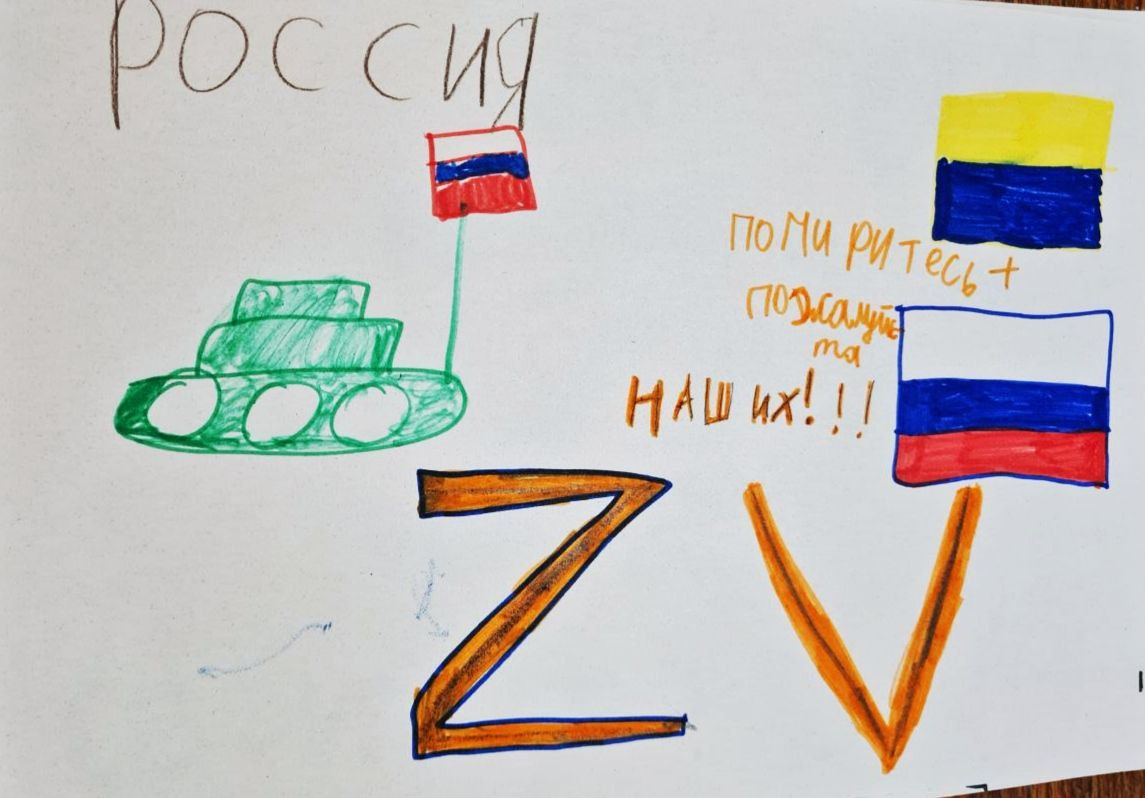 РОССИЯ
ПОМИРИТЕСЬ+
пожалуйс
та
НАШИХ!!!
Z V